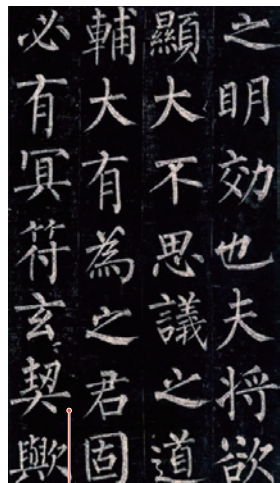 之明効也夫将欲
顯大不思議之道
輔大有為之君固
必有冥符玄契歟